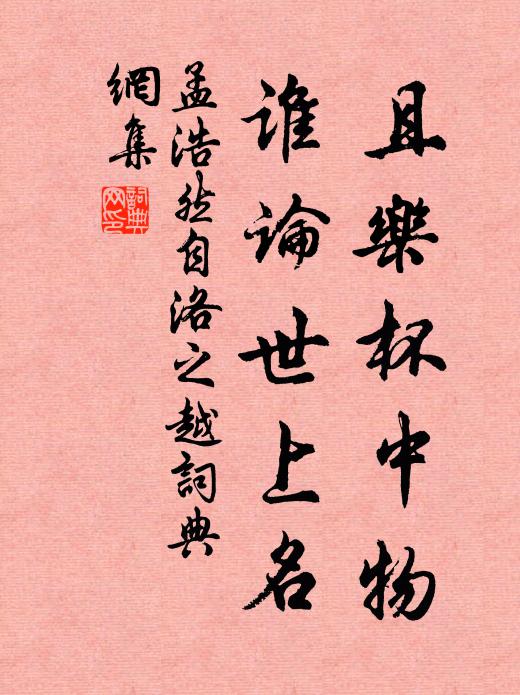 且樂杯中物
誰論世上名
孟浩然自洛之越詞典
網集
詞典
网印